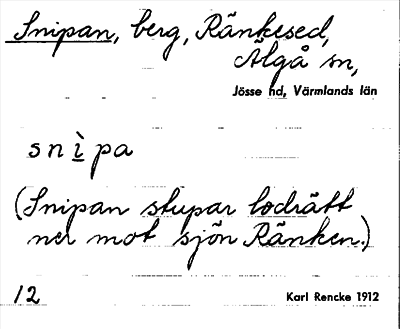 Snipan, berg, Ränkesed,
Älgå sn,
Jösse hd, Värmlands län
snìpa
(Snipan stupar lodrätt
ner mot sjön Ränken.)
12
Karl Rencke 1912